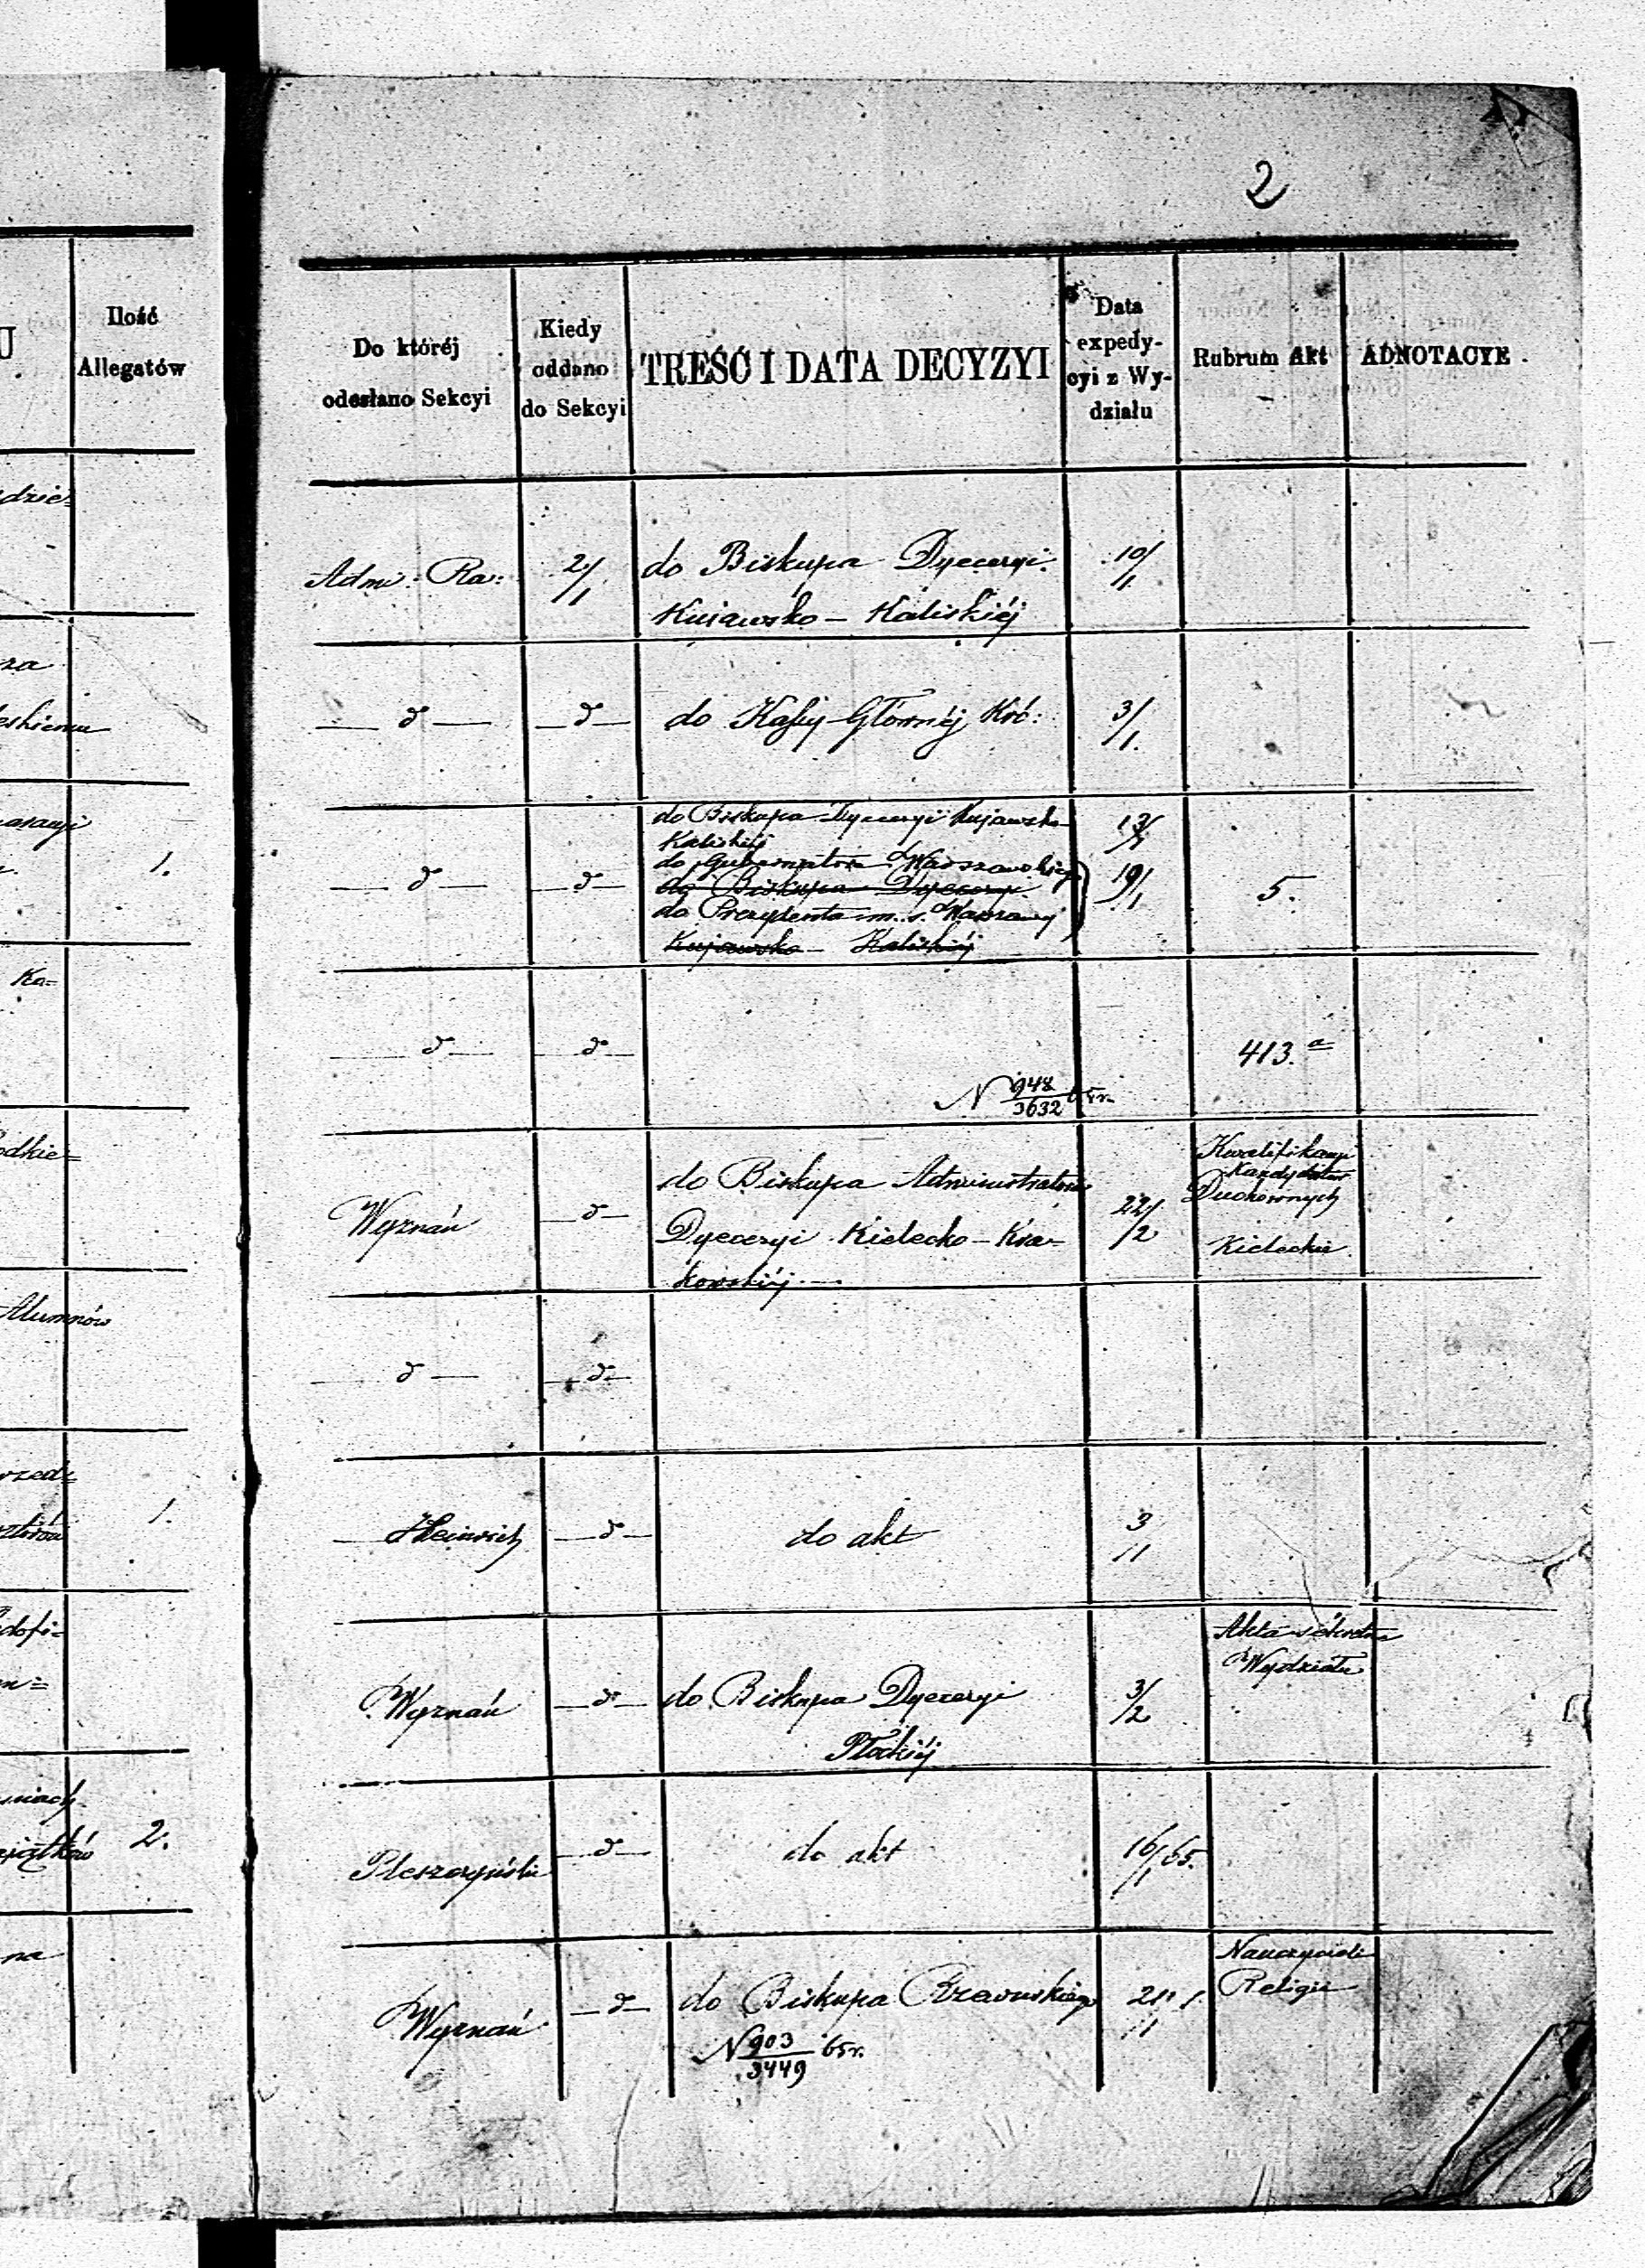 2
U
Ilość
Allegatów
Do któréj
odesłano Sekcyi
Kiedy
oddano
do Sekcyi
TREŚĆ I DATA DECYZYI
Data
expedy-
cyi z Wy-
działu
Rubrum Akt
ADNOTACYE.
dzie=
Adm: Ra:
2/1
do Biskupa Dyecezyi
Kujawsko – Kaliskiéj
10/1
za
— d —
— d —
do Kassy Głównéj Kró:
3/1.
1.
— d —
— d —
do Biskupa Dyecezyi Kujawsko
Kaliskiéj
do Gubernatora Warszawskiego
do Biskupa Dyecezyi
do Prezydenta m. s. Warszawy
Kujawsko – Kaliskiéj
13/1
19/1
5.
Ka=
— d —
— d —
413.a
N 948/3632 65r.
odkie=
Wyznań
— d —
do Biskupa Administratora
Dyecezyi Kielecko – Kra-
kowskiéj.—
22/2
Kwalifikacye
Kandydatów
Duchownych
Kieleckie.
Alumnów
— d —
— d —
rzed=
1.
Heinrich
— d —
do akt
3/1
dofi=
Wyznań
— d —
do Biskupa Dyecezyi
Płockiéj
3/2
Akta
Wydziału
2.
Pleszczyński
— d —
do akt
16/1 65.
na
Wyznań
— d —
do Biskupa Rzewuskiego
N 903/3449 65r.
Nauczyciele
Religii